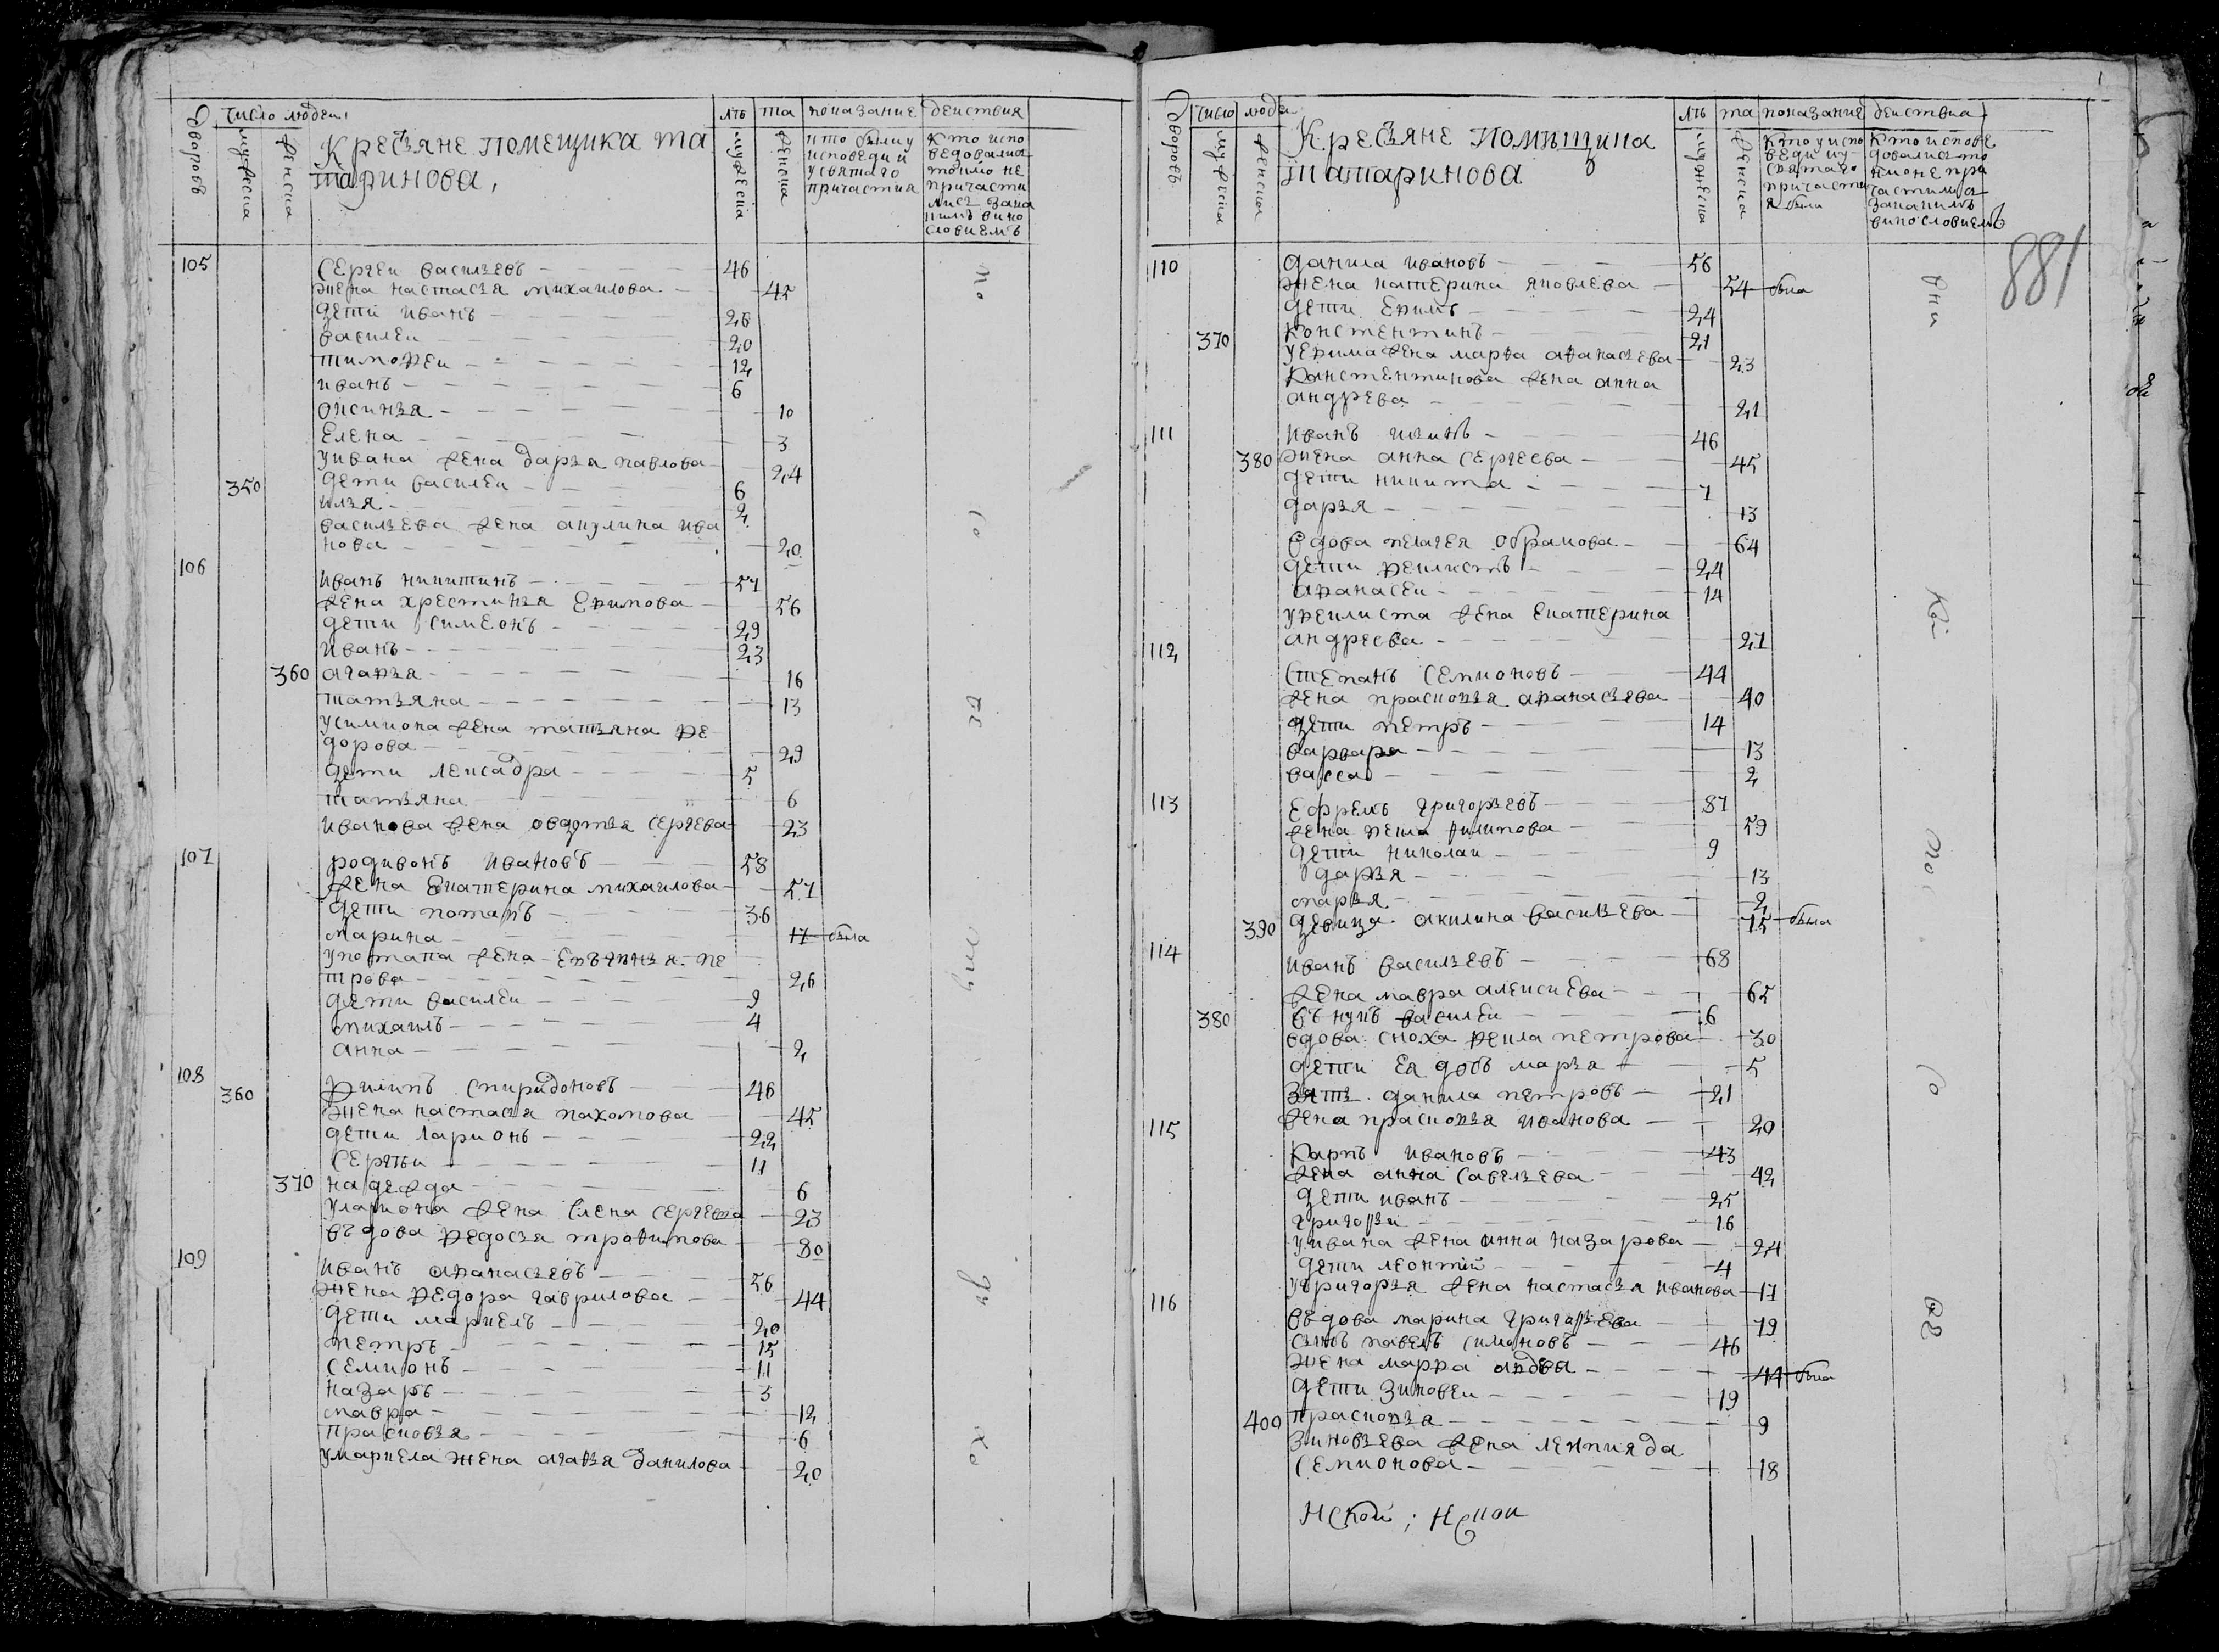 Дворовъ
Число людеи
мужеска
женска
Крестьяне помещика та
таринова,
лѣ та
мужеска
женска
показание действия
кто были у
исповеди и
у святаго
причастия
кто испо
ведовался
токмо не
причасти
лись
винословиемъ
105
Сергеи васильевъ 46
жена настасья михаилова 45
дети иванъ 26
василеи 20
тимофеи 12
иванъ 6
оксинья 10
Елена 3
у ивана жена дарья павлова 24
350 дети василеи 6
илья 2
васильева жена акулина ива
нова 20
106
иванъ никитинъ 57
жена хрестинья Ефимова 56
дети симеонъ 29
иванъ 23
360 агафья 16
татьяна 13
у симиона жена татьяна фе
дорова 29
дети лексадра 5
татьяна 6
иванова жена овдотья сергева 23
107
родивонъ ивановъ 58
жена Екатерина михаилова 57
дети потапъ 36
марина 17 была
у потапа жена пе
трова 26
дети василеи 9
михаилъ 4
анна 2
108
360 Филипъ спиридоновъ 46
жена настасья пахомова 45
дети ларионъ 22
Сергѣи 11
370 надежда 6
у лариона жена Елена сергева 23
въдова федосья трофимова 80
109
иванъ афанасьевъ 56
жена федора гаврилова 44
дети маркелъ 20
петръ 15
семионъ 11
назаръ 3
мавра 12
прасковья 6
у маркела жена агафья данилова 20
Дворовъ
число люде
мужеска
женска
Крестьяне помѣщика
татаринова
лѣ та
мужеска
женска
показание действиа
кто у испо
веди и у
святаго
причасти
я были
кто испове
довался то
кмо не при
частился
за какимъ
винословиемъ
881
110
данила ивановъ 56
жена катерина яковлева 54 была
дети Ефимъ 24
370 констентинъ 21
у ефима жена марфа афанасьева 23
констентинова жена анна
андрева 21
111
иванъ 46
380 жена анна сергеева 45
дети никита 7
дарья 13
вдова пелагея обрамова 64
дети феклистъ 24
афанасеи 14
у феклиста жена Екатерина
андреева 21
112
степанъ семионовъ 44
жена прасковья афанасьева 40
дети петръ 14
варвара 13
васса 2
113
Ефремъ григорьевъ 87
жена фекла филипова 59
дети николаи 9
дарья 13
марья 2
390 девица акилина васильева 15 была
114
иванъ васильевъ 68
жена мавра алексиева 65
380 въ нукъ василеи 6
вдова сноха фекла петрова 30
дети Ея дочь марья 5
зять данила петровъ 21
жена прасковья иванова 20
115
Карпъ ивановъ 43
жена анна савельева 42
дети иванъ 25
григорьи 16
у ивана жена анна назарова 24
дети леонтии 4
у григорья жена настасья иванова 17
116
въдова марина григорьева 79
сынъ павелъ симоновъ 46
жена марфа 44 была
дети зиновеи 19
400 прасковья 9
зиновьева жена
семионова 18